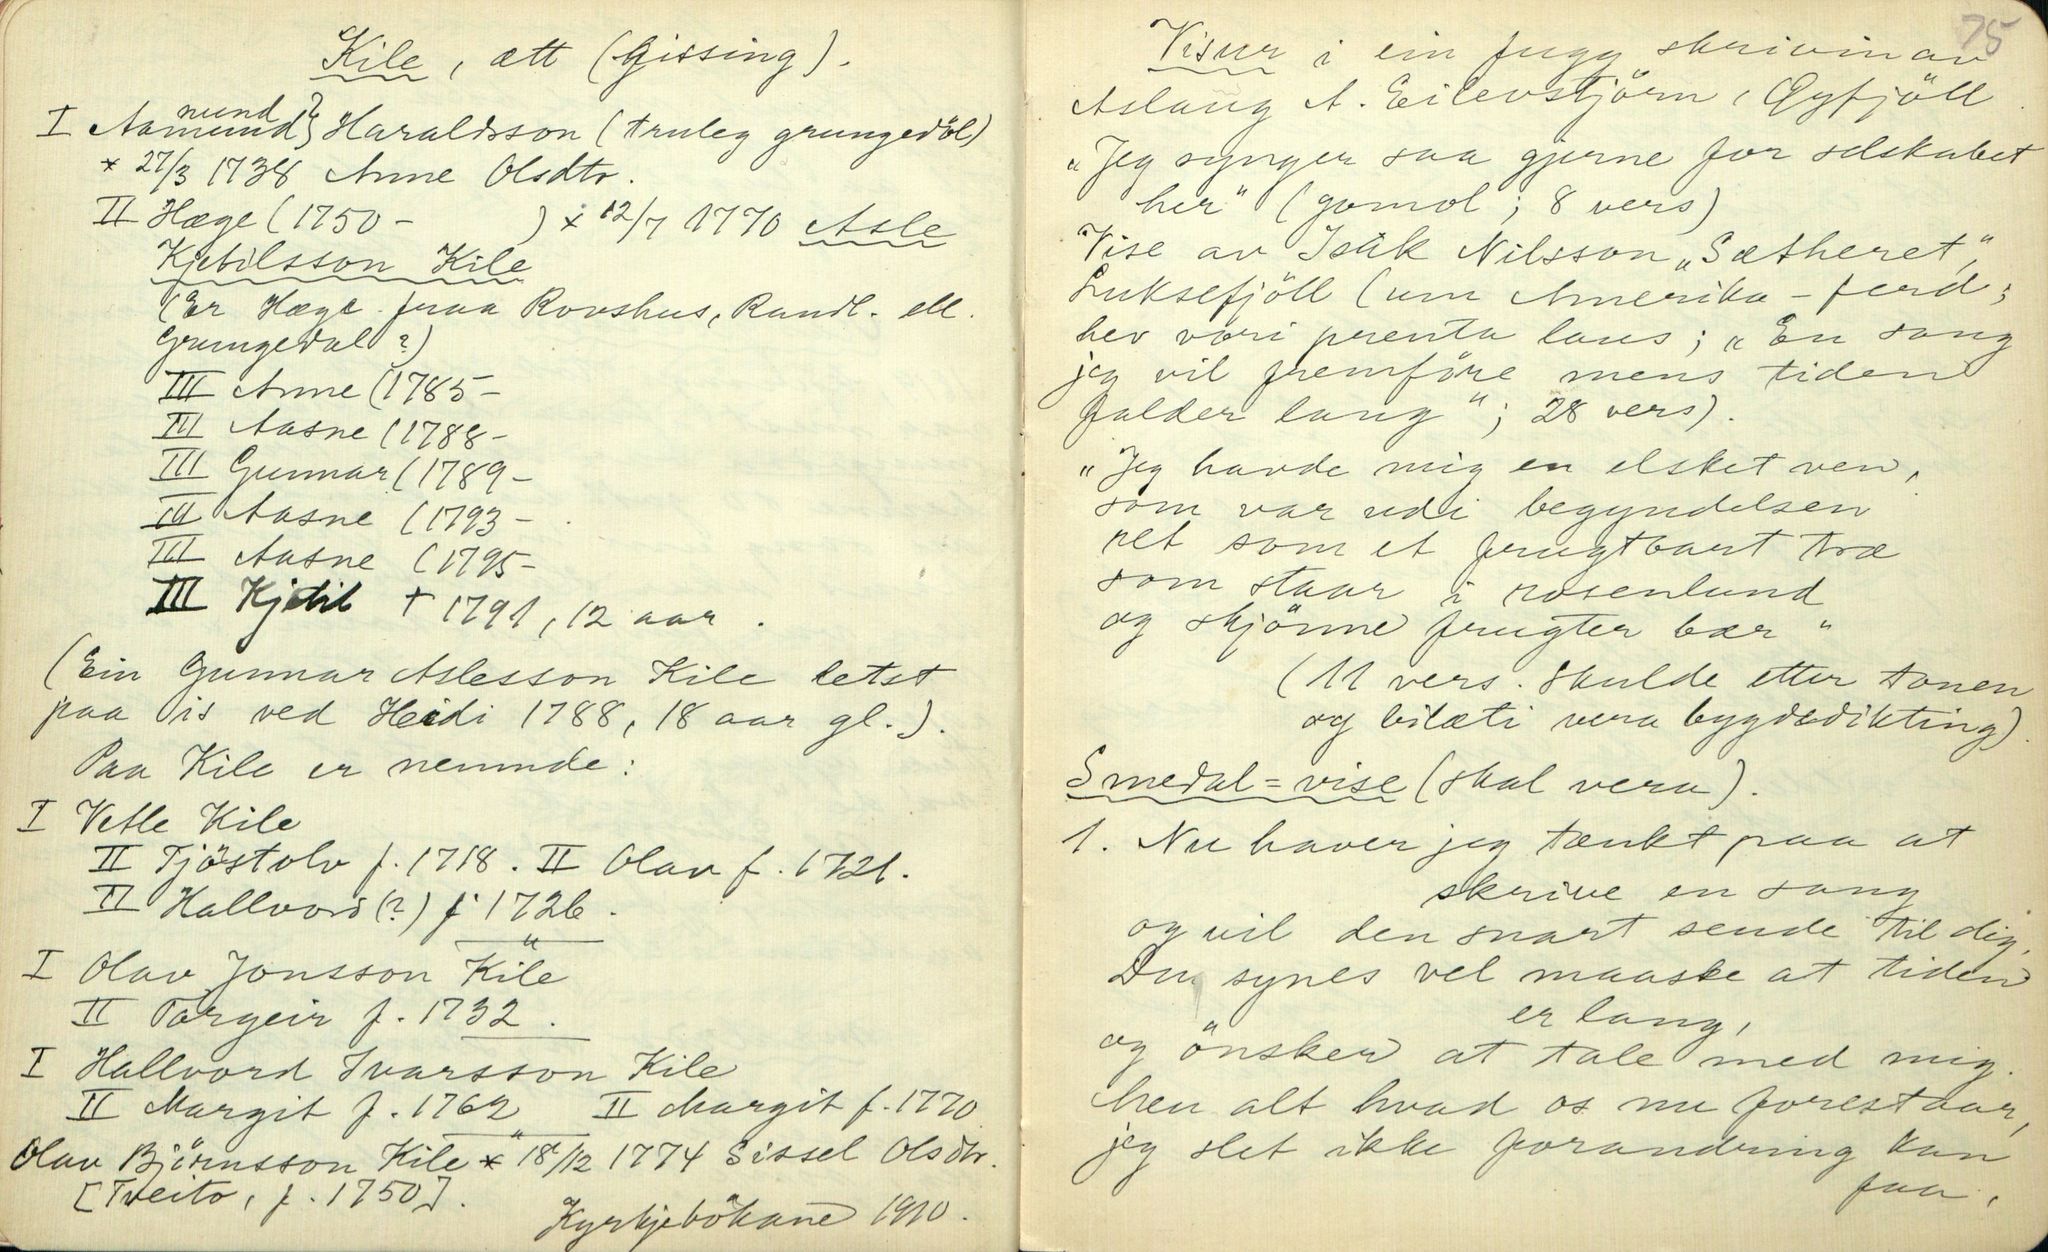 Kile, ætt (Gissing).
I Aamund} Haraldsson (truleg grungedöl)
nund ?
x 27/3 1738 Anne Olsdtr.
II Hæge (1750 - ) x 12/7 1770 Asle
Kjetilsson Kile
(Er Hæge fraa Rovshus, Raudl. ell.
Grungedal?)
III Anne (1785 -
III Aasne (1788 -
III Gunnar (1789 -
III Aasne (1793 -
III Aasne (1795 -
III Kjetil † 1791, 12 aar.
(Ein Gunnar Aslesson Kile letst
paa is ved Heidi 1788, 18 aar gl.).
Paa Kile er nemnde:
I Vetle Kile
II Tjöstolv f. 1718. II Olav f. 1721.
II Hallvord (?) f. 1726.
"
I Olav Jonsson Kile
II Torgeir f. 1732.
I Hallvord Ivarsson Kile
II Margit f. 1762 II Margit f. 1770
"
Olav Björnsson Kile x 18/12 1774 Sissel Olsdtr.
[Tveito, f. 1750].
Kyrkjebökane 1910.
75
Visur i ein fugg skrivin av
Aslaug A. Eilevstjörn, Gyfjöll.
"Jeg synger saa gjerne for selskabet
her" (gomol; 8 vers)
Vise av Isak Nilsson "Sætheret",
Luksefjöll (um Amerika-ferd;
hev vori prenta laus; "En sang
jeg vil fremföre mens tiden
falder lang"; 28 vers).
"Jeg havde mig en elsket ven,
som var udi begyndelsen
ret som et frugtbart træ
som staar i rosenlund
og skjönne frugter bær"
(11 vers. Skulde etter tonen
og bilæti vera bygdedikting).
Smedal=vise (skal vera).
1. Nu haver jeg tænkt paa at
skrive en sang
og vil den snart sende til dig,
Du synes vel maaske at tiden
er lang,
og önsker at tale med mig.
Men alt hvad os nu forestaar,
jeg slet ikke forandring kan
faa,